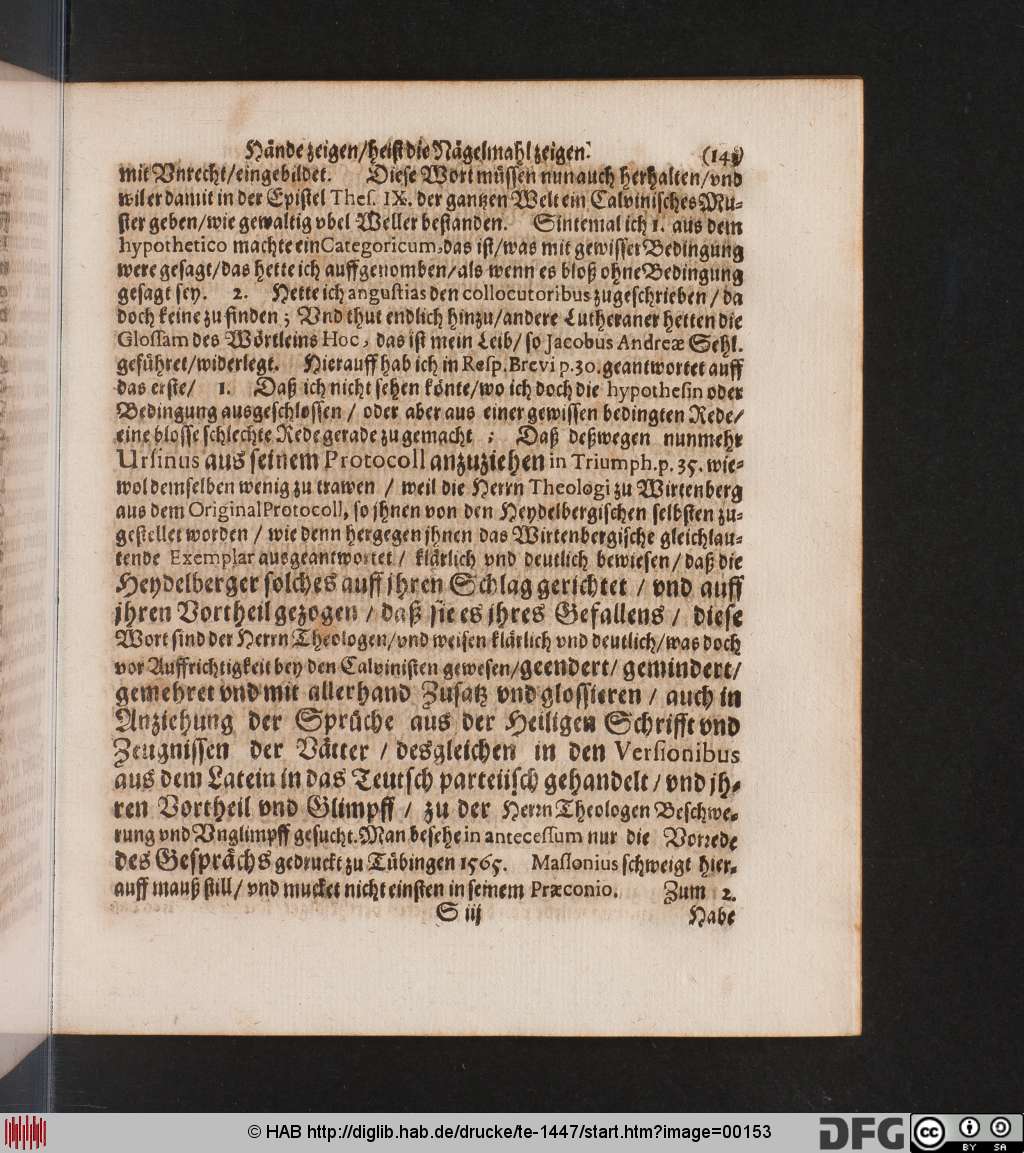 Hände zeigen/heist die Nägelmahl zeigen.
mit Vnrecht/eingebildet. Diese Wort müssen nun auch herhalten/vnd
wil er damit in der Epistel Thes. IX. der gantzen Welt ein Calvinisches Mu-
ster geben/wie gewaltig vbel Weller bestanden. Sintemal ich 1. aus dem
hypothetico machte ein Categoricum, das ist/was mit gewisser Bedingung
were gesagt/das hette ich auffgenomben/als wenn es bloß ohne Bedingung
gesagt sey. 2. Hette ich angustias den collocutoribus zugeschrieben / da
doch keine zu finden ; Vnd thut endlich hinzu/andere Lutheraner hetten die
Glossam des Wörtleins Hoc, das ist mein Leib/ so Jacobus Andreæ Sehl.
geführet/widerlegt. Hierauff hab ich in Resp. Brevi p. 30. geantwortet auff
das erste/ 1. Daß ich nicht sehen könte/wo ich doch die hypothesin oder
Bedingung ausgeschlossen / oder aber aus einer gewissen bedingten Rede/
eine blosse schlechte Rede gerade zu gemacht ; Daß deßwegen nunmehr
Ursinus aus seinem Protocoll anzuziehen in Triumph. p. 35. wie-
wol demselben wenig zu trawen / weil die Herrn Theologi zu Wirtenberg
aus dem Original Protocoll, so jhnen von den Heydelbergischen selbsten zu-
gestellet worden / wie denn hergegen jhnen das Wirtenbergische gleichlau-
tende Exemplar ausgeantwortet / klärlich vnd deutlich bewiesen / daß die
Heydelberger solches auff jhren Schlag gerichtet / vnd auff
jhren Vortheil gezogen / daß sie es jhres Gefallens / diese
Wort sind der Herrn Theologen/vnd weisen klärlich vnd deutlich/was doch
vor Auffrichtigkeit bey den Calvinisten gewesen/geendert/ gemindert/
gemehret vnd mit allerhand Zusatz vnd glossieren / auch in
Anziehung der Sprüche aus der Heiligen Schrifft vnd
Zeugnissen der Vätter / desgleichen in den Versionibus
aus dem Latein in das Teutsch parteiisch gehandelt / vnd jh-
ren Vortheil vnd Glimpff / zu der Herrn Theologen Beschwe-
rung vnd Vnglimpff gesucht. Man besehe in antecessum nur die Vorrede
des Gesprächs gedruckt zu Tübingen 1565. Massonius schweigt hier-
auff mauß still/ vnd mucket nicht einsten in seinem Præconio. Zum 2.
S iij Habe
© HAB http://diglib.hab.de/drucke/te-1447/start.htm?image=00153
DFG
cc BY SA